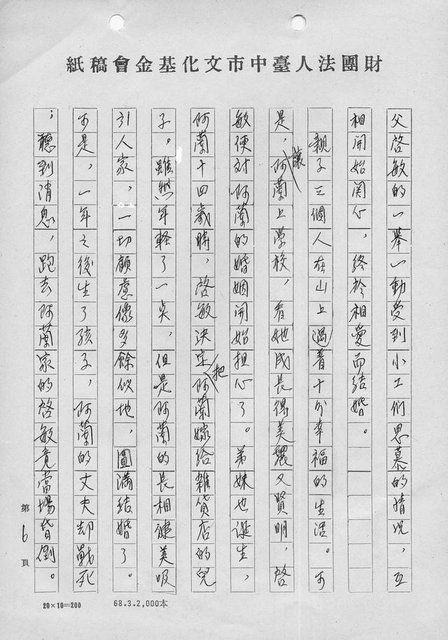 財團法人臺中市文化基金會稿紙
父啓敏的一舉一動受到小工們思慕的情況，互
相開始關心，終於相愛而結婚。
親子三個人在山上過着十分幸福的生活。可
是，讓阿蘭上學校，看她成長得美麗又賢明，啓
敏便對阿蘭的婚姻開始担心了。弟妹也誕生，
阿蘭十四歲時，啓敏決定把阿蘭嫁給雜貨店的兒
子。雖然年輕了一點，但是阿蘭的長相健美吸
引人家，一切顧意像多餘似地，圓滿結婚了。
可是，一年之後生了孩子，阿蘭的丈夫却戰死
；聽到消息，跑去阿蘭家的啓敏竟當場昏倒。
第6頁
20×10=200
68.3.2,000本